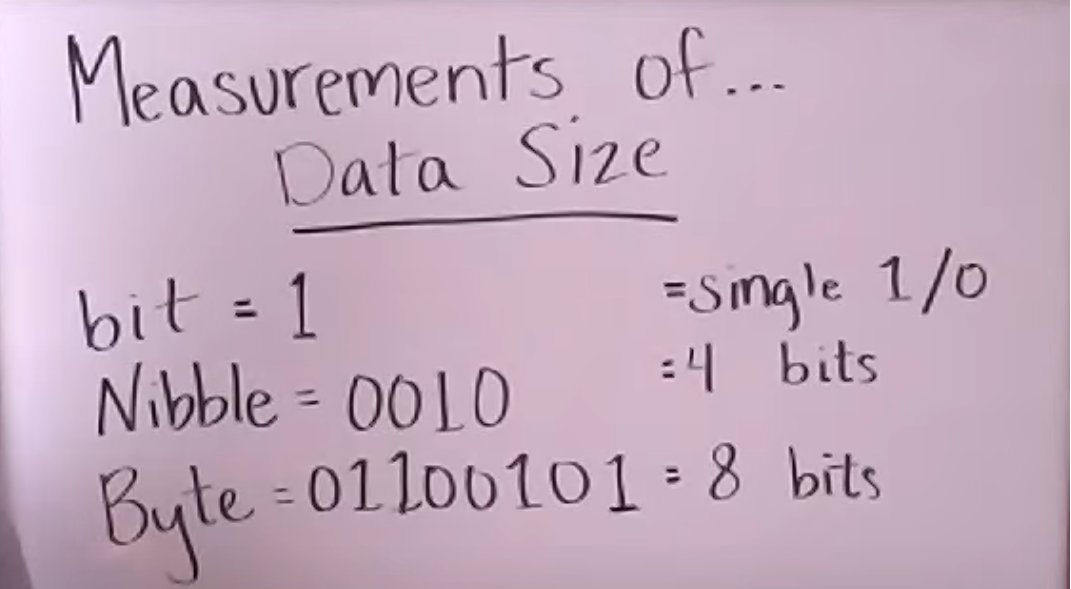 Measurements of...
Data Size
bit = 1 =single 1/0
Nibble = 0010 =4 bits
Byte = 01100101 = 8 bits